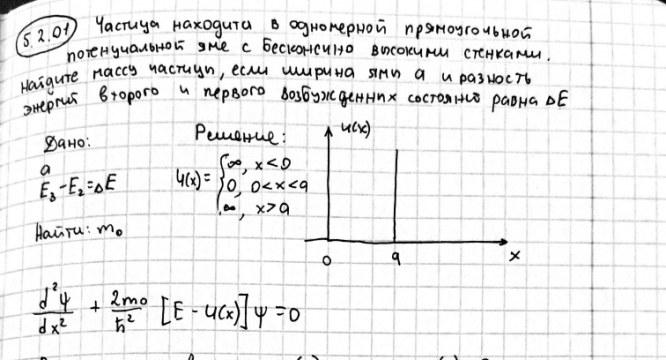 5.2.01
Частица находится в одномерной прямоугольной
потенциальной яме с бесконечно высокими стенками.
Найдите массу частицы, если ширина ямы a и разность
энергий второго и первого возбужденных состояний равна ΔE
Дано:
a
E₃-E₂=ΔE
Найти: m₀
Решение:
U(x)= { ∞, x<0
0, 0<x<a
∞, x>a
U(x)
0 a x
d²ψ/dx² + 2m₀/ħ² [E - U(x)] ψ = 0